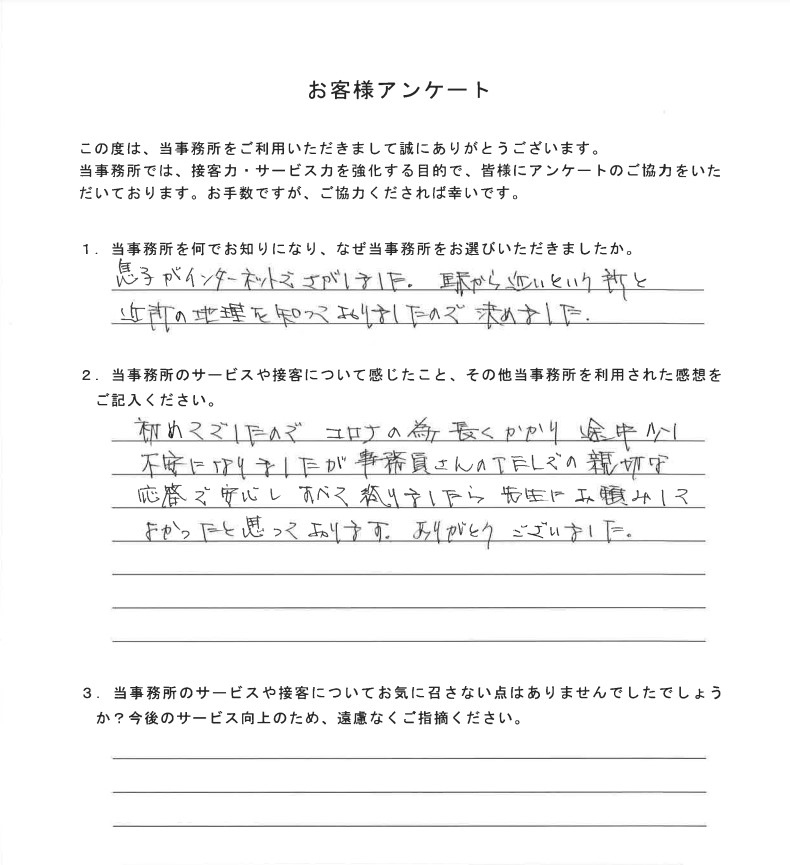 お客様アンケート
この度は、当事務所をご利用いただきまして誠にありがとうございます。
当事務所では、接客力・サービス力を強化する目的で、皆様にアンケートのご協力をいた
だいております。お手数ですが、ご協力くだされば幸いです。
１．当事務所を何でお知りになり、なぜ当事務所をお選びいただきましたか。
息子がインターネットでさがしました。駅から近いという所と
近所の地理を知っておりましたので決めました.
２．当事務所のサービスや接客について感じたこと、その他当事務所を利用された感想を
ご記入ください。
初めてでしたので コロナの為 長くかかり 途中少し
不安になりましたが事務員さんのTELでの親切な
応答で安心し すべて終りましたら 先生にお頼みして
よかったと思っております。ありがとう ございました。
３．当事務所のサービスや接客についてお気に召さない点はありませんでしたでしょう
か？今後のサービス向上のため、遠慮なくご指摘ください。